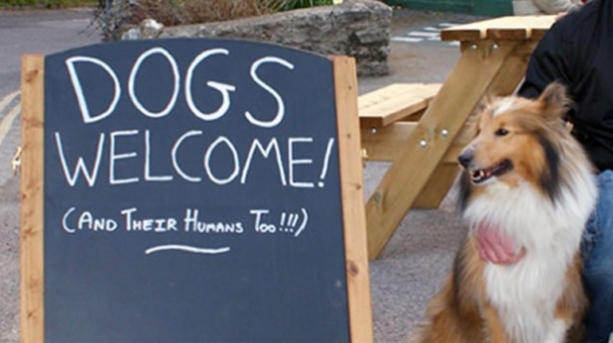 DOGS
WELCOME!
(AND THEIR HUMANS TOO!!!)